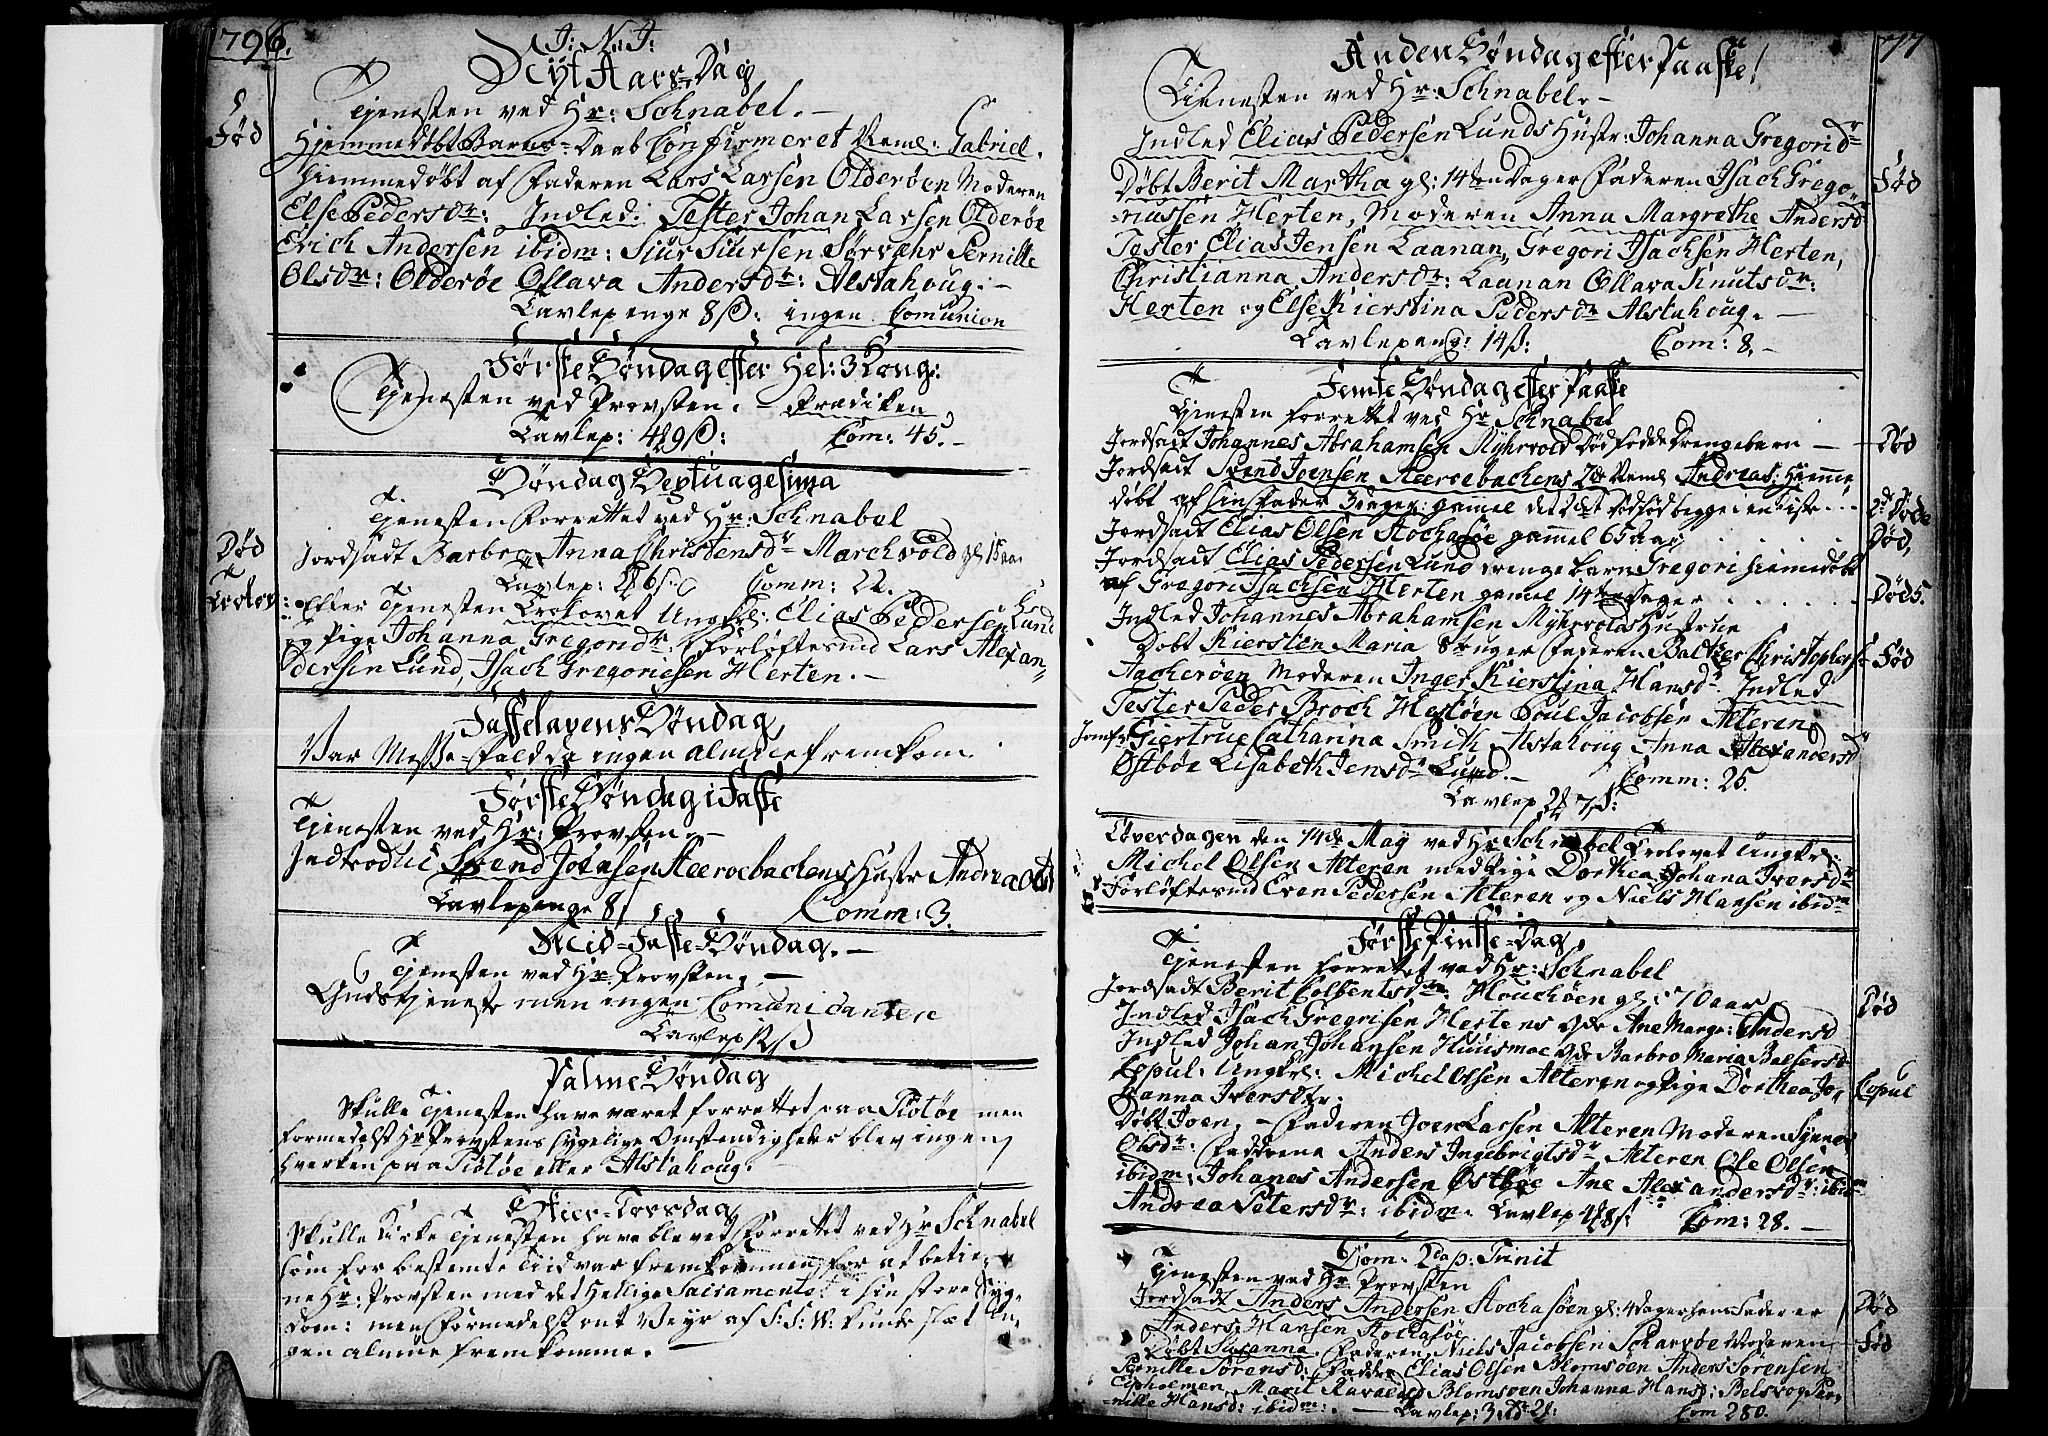 1796.
J: N: J:
Nyt Aars Dag
Tjenesten ved Hr: Schnabel.
Fød
Hjemmedøbt Barns Daab Confirmeret Navnl: Gabriel.
hiemmedøbt af Faderen Lars Larsen Olderøen Moderen
Else Pedersdr: Indled: Tester Johan Larsen Olderøe
Erich Andersen ibidm: Siur Siursen Sørvæhr Pernille
Olsdr: Olderøe Ollava Andersdr: Alstahoug.
Tavlepenge 8 ß: ingen Comunion
Første Søndag efter Hel: 3 Kong:
Tjenesten ved Provsten. - Prædiken
Tavlep: 49 ß: Com: 45.
Søndag Septuagesima
Tjenesten Forrettet ved Hr: Schnabel
Død
Jordfadt Barbro Anna Christensdr Marchvold gl 15 aar
Tavlep: Comm: 22.
Trolov:
Efter Tjenesten Trolovet Ungkrl: Elias Pedersen Lund
og Pige Johanna Gregoridr: Forløftesmd Lars Alexan-
dersen Lund, Isach Gregoriesen Herten.
Fastelavens Søndag
Var Messe-Fald da ingen almue fremkom
Første Søndag i Faste
Tjenesten ved Hr: Provsten.
Introduc Svend Joensen Steeroebachens Hustr Andrea
Tavlepenge 8 Comm: 3.
Mid-Faste-Søndag.
Tjenesten ved Hr: Provsten.
Gudstjeneste men ingen Comunicantere
Tavlep 12 ß
Palme Søndag
Skulle Tjenesten have været forrettet paa Tiøtøe men
formedelst Hr Provstens sygelige Omstændigheder blev ingen
hverken paa Tiøtøe eller Alstahoug.
Skier-Torsdag
Skulle Kirke Tjenesten have blevet Forrettet ved Hr Schnabel
som for bestemte Tiid var fremkommen, for at betie-
ne Hr: Provsten med det Hellige Sacramente i sin store Syg-
dom: men formedelst ont Veyr af S: S: W: kunde slæt in-
gen almue fremkomme.
77
Anden Søndag efter Paaske!
Tjenesten ved Hr: Schnabel.
Indled Elias Pedersen Lunds Hustr: Johanna Gregoridr
Døbt Berit Martha gl: 14ten Dager Faderen Isach Grego-
Fød
riussen Herten, Moderen Anna Margrethe Andersdr
Tester Elias Jensen Laanan, Gregori Isachsen Herten,
Christianna Andersdr: Laanan Ollava Knutsdr:
Herten og Else Kierstina Pedersdr Alstahoug.
Tavlepeng: 14 ß: Com: 8.
Femte Søndag efter Paaske
Tjenesten forrettet ved Hr Schnabel
Jordfadt Johannes Abrahamsen Myhrvold Dødfødde Drengebarn
Død
Jordfadt Svend Joensen Steeroebachens 2de Navnl Andreas: Hiemme
døbt af sin Fader 3 dager gamel det Dødfød begge i en kiste
2de Døde
Jordfadt Elias Olsen Stochasøe gammel 65 aar
Død,
Jordfadt Elias Pedersen Lund drenge barn Gregori hiemedøbt
af Gregori Isachsen Herten gamel 14ten dager
Død 5.
Indled Johannes Abrahamsen Myhrvolds Hustrue
Døbt Kiersten Maria 8 uger Faderen Baltzer Christophers:
Fød
Aacherøen Moderen Inger Kierstina Hansdr Indled
Tester Peder Broch Hestøen Poul Jacobsen Alteren
Jomfr Giertrue Catharina Smith Alstahoug Anna Alexandersdr
Østbøe Lisabeth Jensdr Lund. Comm: 25.
Tavlep 2 7 ß:
Løverdagen den 14de May ved Hr Schnabel Trolovet Ungkrl:
Michel Olsen Alteren med Pige Dorthea Johana Iversdr
Forløftesmd Even Pedersen Alteren og Niels Hansen ibidm
Første Pintse-Dag
Tjenesten forrettet ved Hr: Schnabel
Jordfadt Berit Colbentsdr: Houchøen gl: 70 aar
Død
Indled Isach Gregrisen Hertens Ane Margr: Andersd
Indled Johan Johansen Huusmoe Barbro Maria Balsersd
Copul: Ungkrl: Michel Olsen Alteren og Pige Dorthea Jo-
Copul
hanna Iversdtr:
Døbt Joen, Faderen Joen Larsen Alteren Moderen Synnev
Olsdr: Faddrene Anders Ingebrigtsdr Alteren Ole Olsen
ibidm, Johanes Andersen Østbøe Ane Alexandersdr: ibidm
Andrea Petersdr: ibidm. Tavlep 48 ß: Com: 28.
Dom: 2da p: Trinit
Tjenesten ved Hr Provsten
Jordfadt Anders Andersen Stochasøen gl: 4 dager hans Fader er
Død
Anders Hansen Stochasøe
Døbt Susanna, Faderen, Niels Jacobsen Scharvøe Moderen
Fød
Pernille Sørensd: Faddre Elias Olsen Blomsøen Anders Sørensen
Marit Blomsøen Johanna Hansd: Belsvog Per-
nille Hansd: ibidm: Tavlep: 3 Com 280.